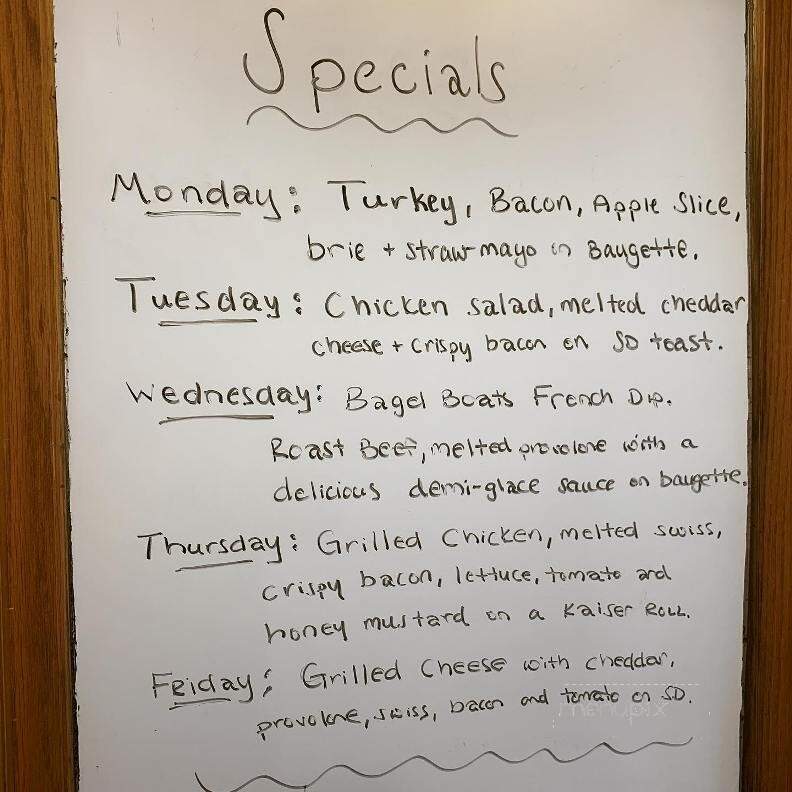 Specials
Monday: Turkey, Bacon, Apple Slice,
brie + straw-mayo on Baugette.
Tuesday: Chicken salad, melted cheddar
cheese + crispy bacon on SD toast.
Wednesday: Bagel Boats French Dip.
Roast Beef, melted provolone with a
delicious demi-glace sauce on baugette.
Thursday: Grilled Chicken, melted swiss,
crispy bacon, lettuce, tomato and
honey mustard on a Kaiser Roll.
Friday: Grilled Cheese with cheddar,
provolone, swiss, bacon and tomato on SD.